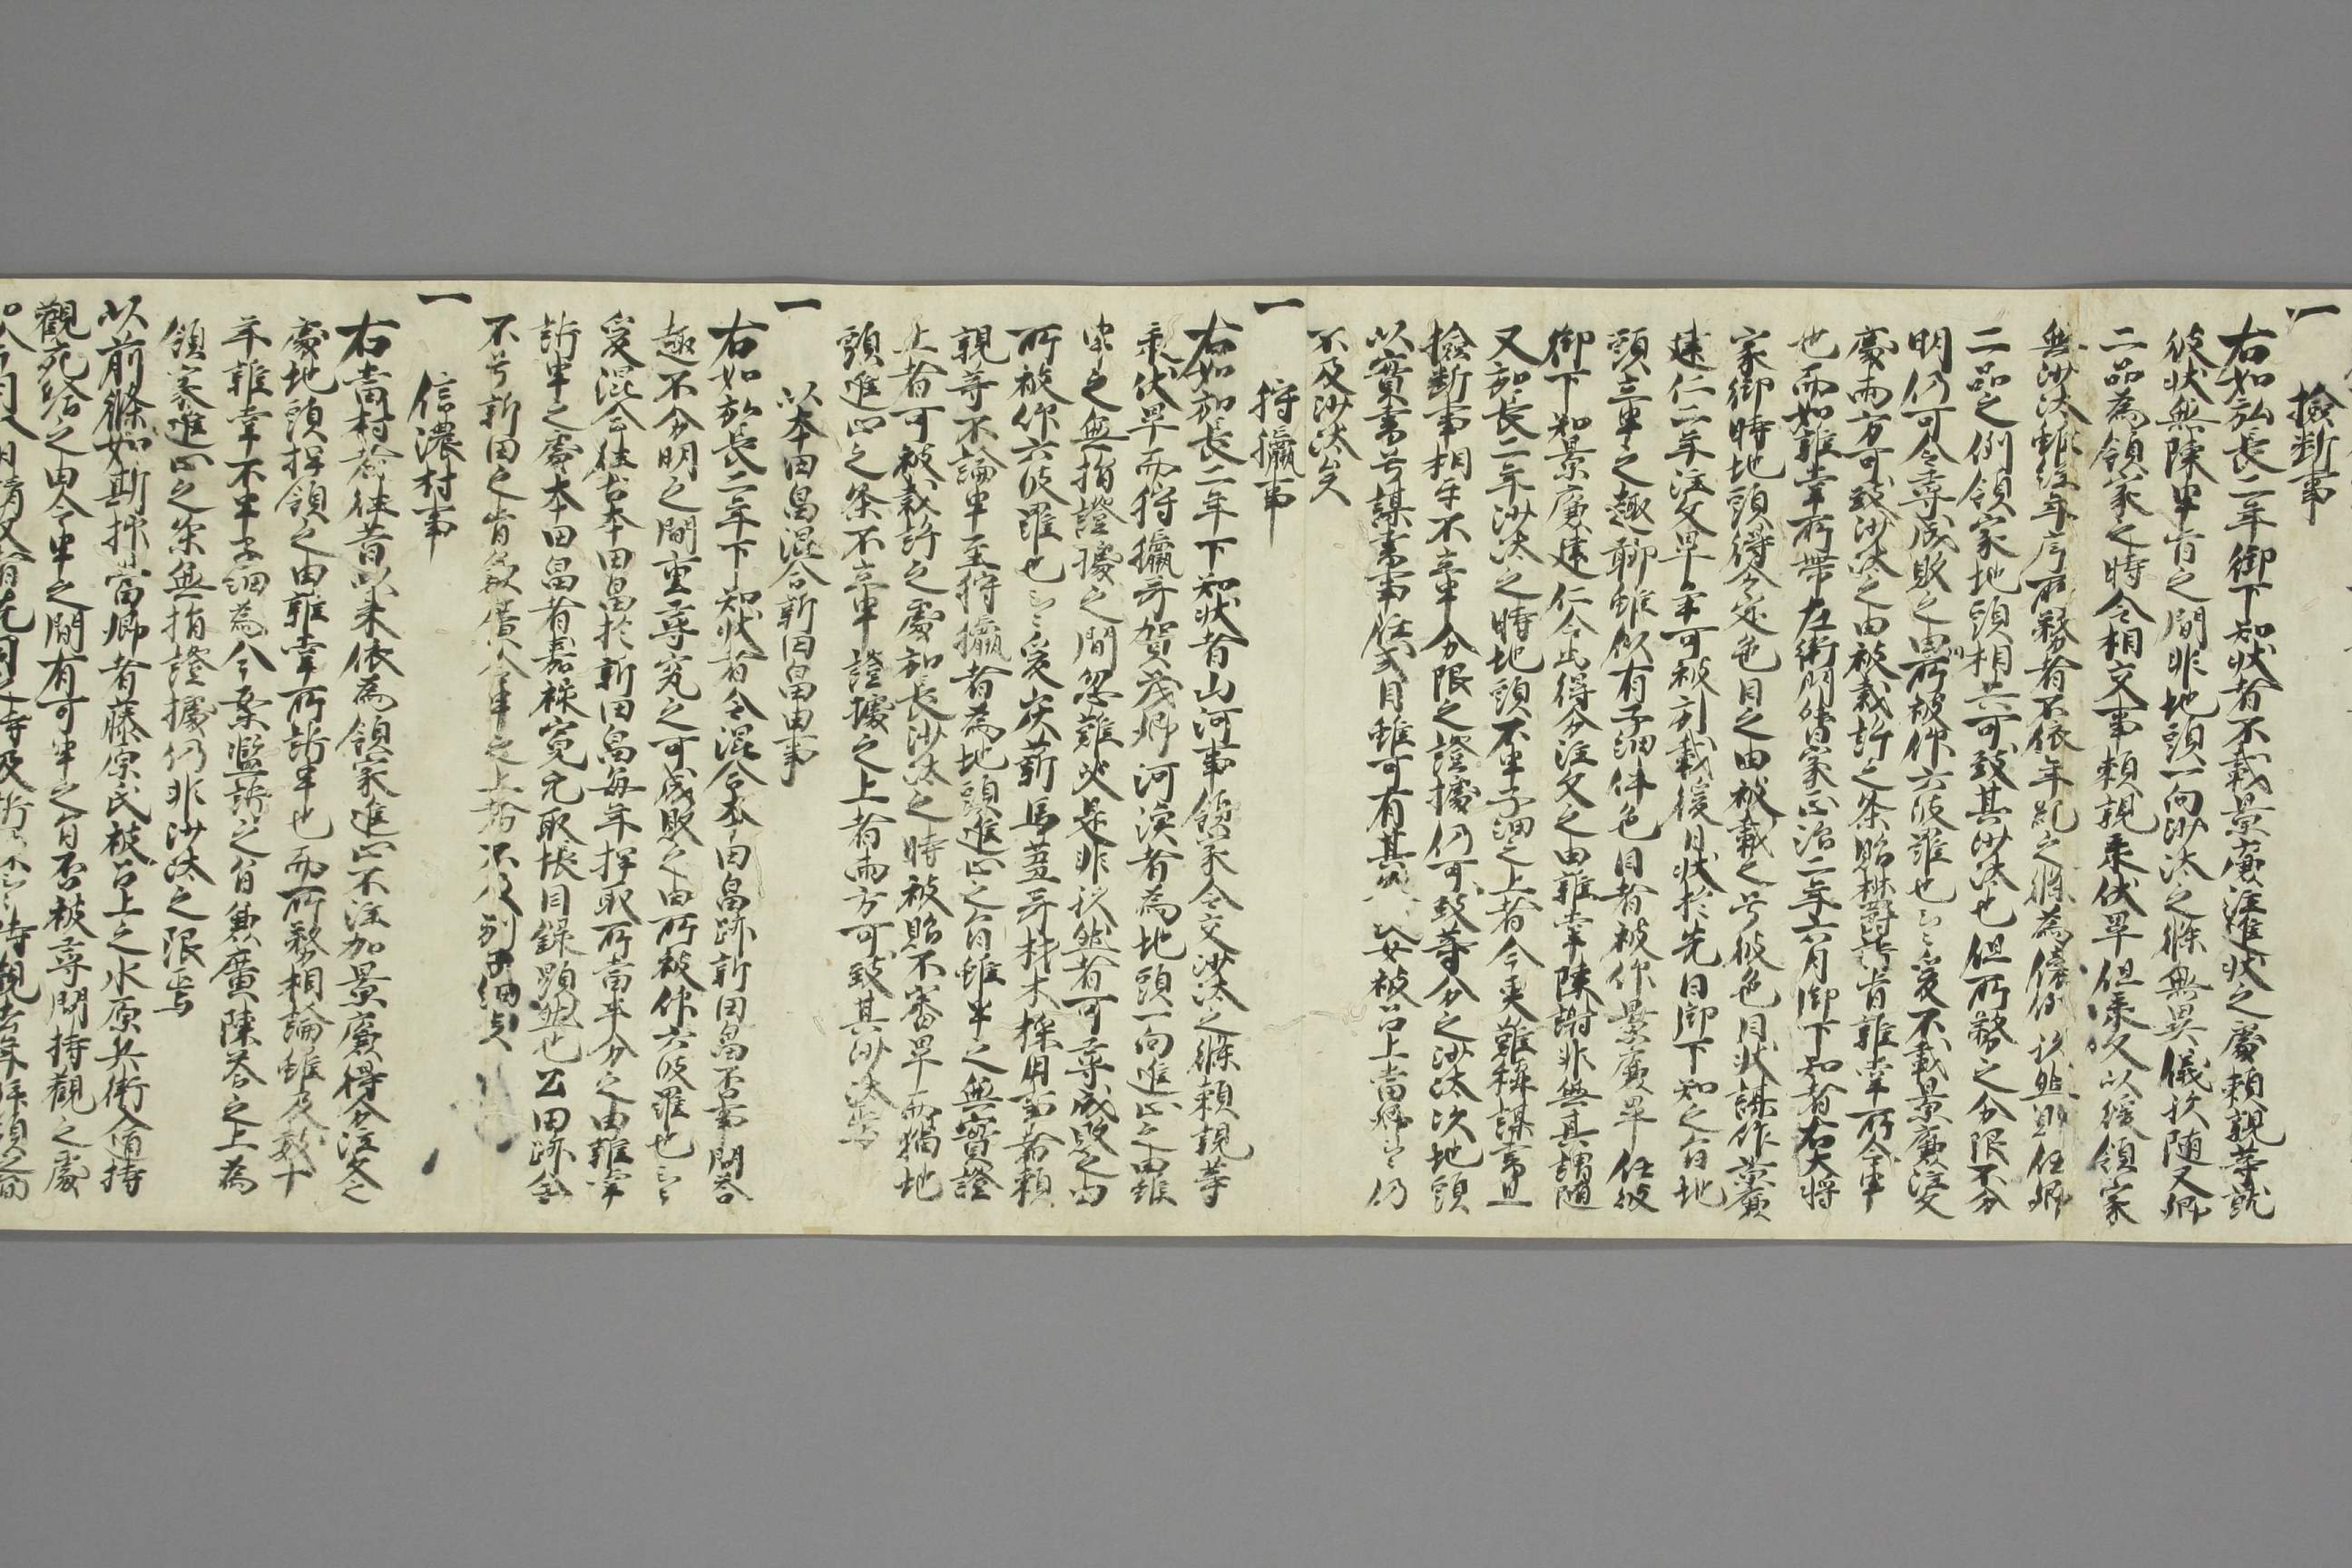 一　檢断事
右如弘長二年御下知状者不載景廉注進状之處頼親等就
彼状無陳申旨之間非地頭一向沙汰之條無異儀歟随又卿
二品為領家之時令相交事頼親承伏畢但承久以後領家
無沙汰雖経年序所務者不依年紀之條為傍例歟然則任卿
二品之例領家地頭相共可致其沙汰也但所務之分限不分
明仍可令尋成敗之由所被仰六波羅也云々爰不載景廉注文
處両方可致沙汰之由被裁許之条貽欝訴旨雜掌所令申
也而如雜掌所帯左衛門督家正治二年六月御下知者右大将
家御時地頭得分定色目之由被載之号彼色目状謀作景廉
建仁二年注文畢争可被刻載後日状於先日御下知之旨地
頭立申之趣聊雖似有子細件色目者被仰景廉畢任彼
御下知景廉建仁令出得分注文之由雜掌陳謝非無其謂随
又弘長二年沙汰之時地頭不申子細之上者今更難稱謀書且
檢断事相互不立申分限之證據仍可致等分之沙汰次地頭
以實書号謀書事任式目雖可有其　　被召上當郷云々仍
不及沙汰矣
一　狩獵事
右如弘長二年下知状者山河事領家令交沙汰之條頼親等
承伏畢而狩獵并賀茂郷河漁者為地頭一向進止之由雖
申之無指證據之間忽難決是非歟然者可尋成敗之由
所被仰六波羅也云々爰炭薪馬草并材木採用事者頼
親等不論申至狩獵者為地頭進止之旨雖申之無實證
上者可被裁許之處弘長沙汰之時被貽不審畢而猶地
頭進止之条不立申證據之上者両方可致其沙汰焉
一　以本田畠混合新田畠由事
右如弘長二年下知状者令混合本田畠跡新田畠否事問答
趣不分明之間重尋究之可成敗之由所被仰六波羅也云々
爰混合往古本田畠於新田畠毎年押取所當半分之由雜掌
訴申之處本田畠者嘉禄寛元取帳目録顕然也公田跡全
不号新田之旨　　令申之上者不及刻子細矣
一　信濃村事
右當村者往昔以来依為領家進止不注加景廉得分注文之
處地頭押領之由雜掌所訴申也而所務相論雖及数十
年雜掌不申子細為今案濫訴之旨兼廣陳答之上為
領家進止之条無指證據仍非沙汰之限焉
以前條々如斯抑當郷者藤原氏被召上之水原兵衛入道持
觀宛給之由令申之間有可申之旨否被尋問持觀之處